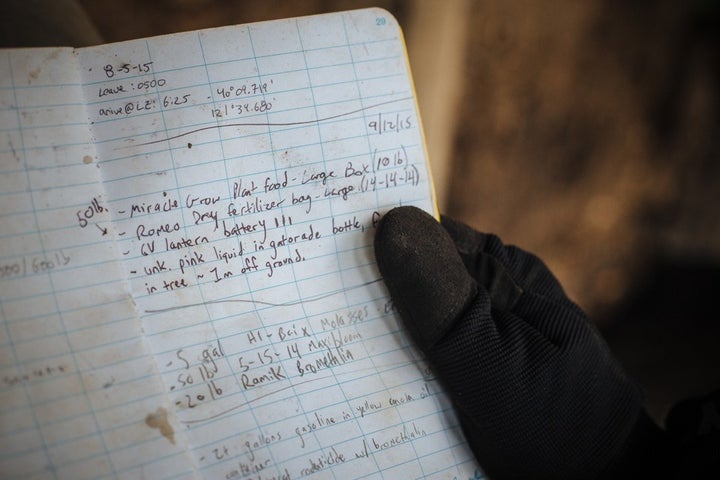 29
8-5-15
Leave: 0500
arrive@LZ: 6:25 - 40°09.719'
121°39.680'
9/12/15
50lb.
- Miracle Grow Plant Food - Large Box (10 lb)
- Romeo Dry fertilizer bag - Large (14-14-14)
- 6V lantern battery 111
- unk. pink liquid in gatorade bottle,
in tree ~ 1m off ground.
- 5 gal Hi-Brix Molasses
- 50 lb 5-15-14 Max bloom
- 20 lb Ramik Bromethalin
- 2+ gallons gasoline in yellow canola oil
container
rodenticide w/ bromethalin